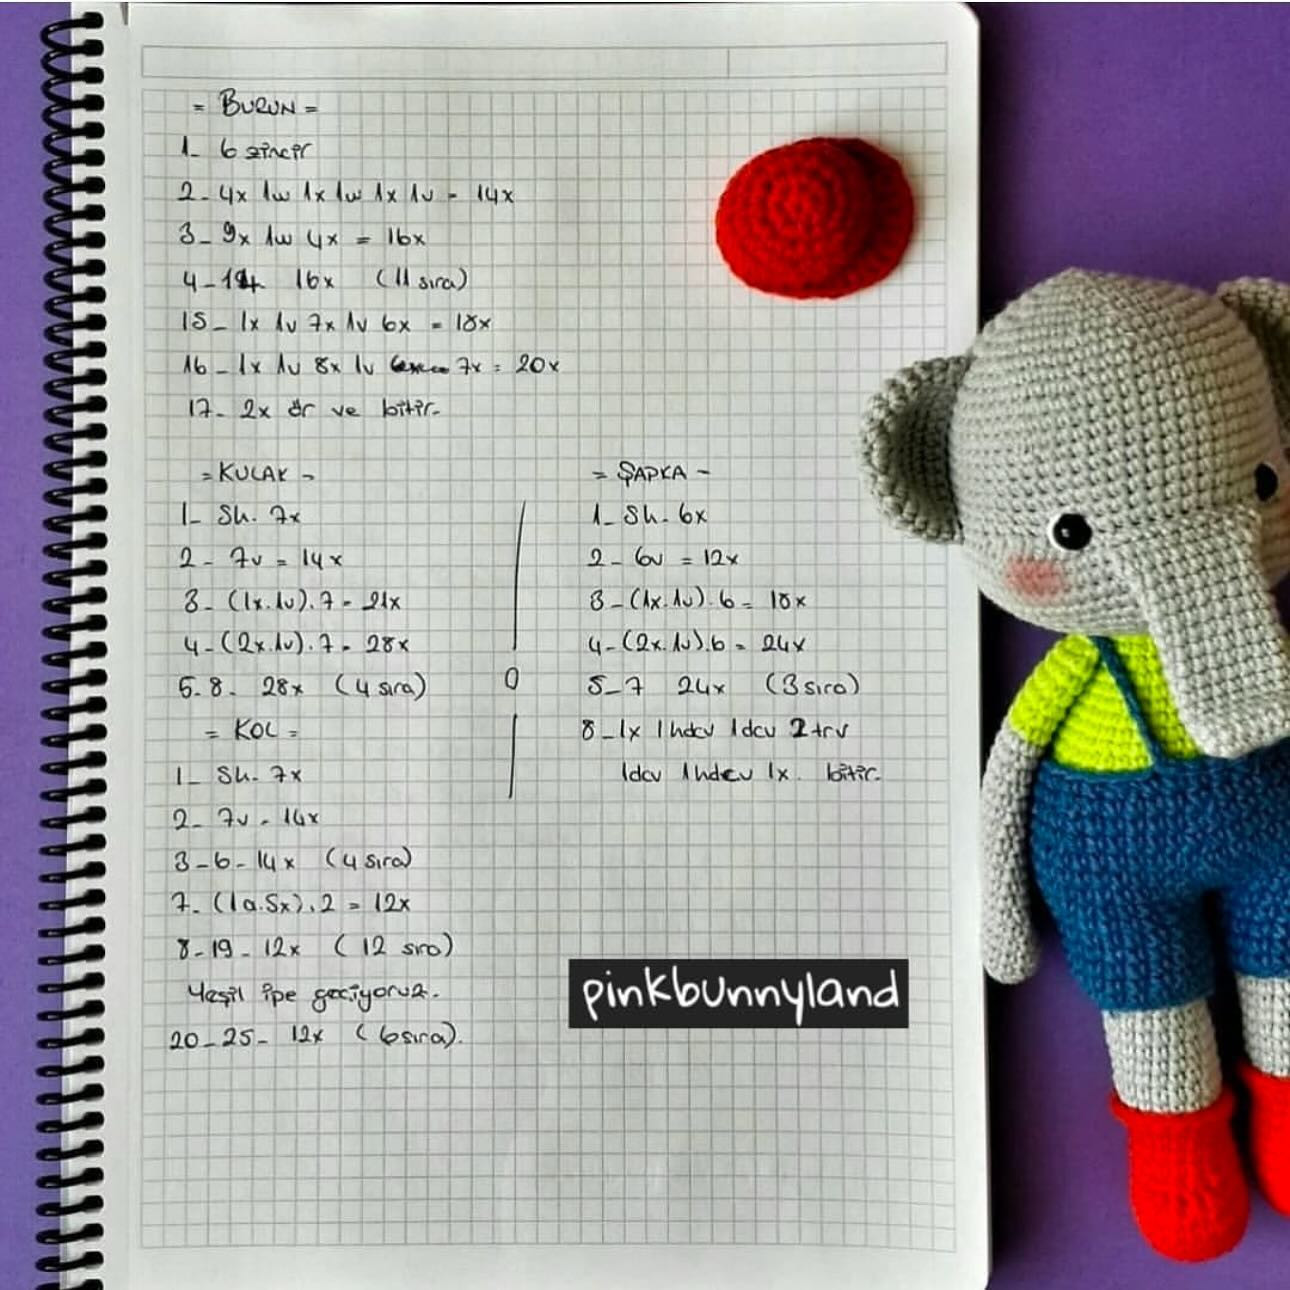 = BURUN =
1- 6 zincir
2- 4x 1w 1x 1w 1x 1v - 14x
3- 9x 1w 4x = 16x
4-14 16x (11 sıra)
15- 1x 1v 7x 1v 6x = 18x
16- 1x 1v 8x 1v 7x = 20x
17- 2x ör ve bitir.
= KULAK -
1- Sh. 7x
2- 7v = 14x
3- (1x.1v).7 - 21x
4- (2x.1v).7 - 28x
5-8- 28x (4 sıra)
= KOL =
1- Sh. 7x
2- 7v - 14x
3-6- 14x (4 sıra)
7- (1a.5x).2 = 12x
8-19- 12x (12 sıra)
Yeşil ipe geçiyoruz.
20-25- 12x (6 sıra).
= ŞAPKA -
1- Sh. 6x
2- 6v = 12x
3- (1x.1v).6 = 18x
4- (2x.1v).6 = 24x
5-7 24x (3 sıra)
8- 1x 1hdcv 1dcv 2trv
1dcv 1hdcv 1x. bitir.
pinkbunnyland